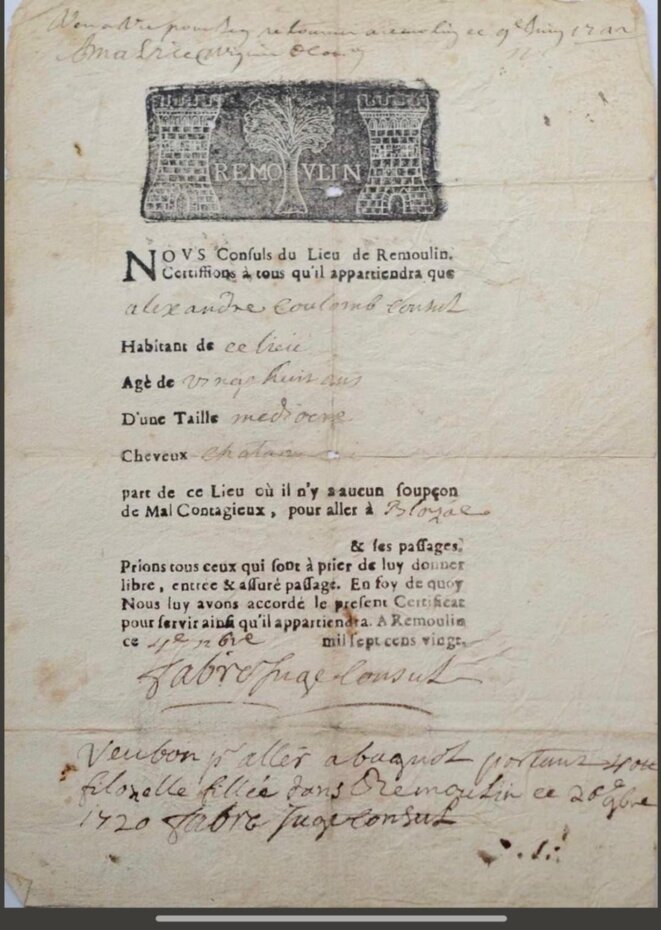 pour s'en retourner a remolin ce 9e Juin
REMOVLIN
NOVS Consuls du Lieu de Remoulin.
Certiffions à tous qu'il appartiendra que
alexandre coulomb consul
Habitant de ce lieu
Agè de vingt huit ans
D'une Taille mediocre
Cheveux chatan
part de ce Lieu où il n'y a aucun soupçon
de Mal Contagieux, pour aller à Blozac
& ses passages.
Prions tous ceux qui sont à prier de luy donner
libre, entree & assuré passage. En foy de quoy
Nous luy avons accordé le present Certificat
pour servir ainsi qu'il appartiendra. A Remoulin
ce 4e nbre mil sept cens vingt.
fabre Juge Consul
Veu bon pr aller a baquot portant
filozelle fillée dans Remoulin ce 26e 9bre
1720 fabre Juge consul